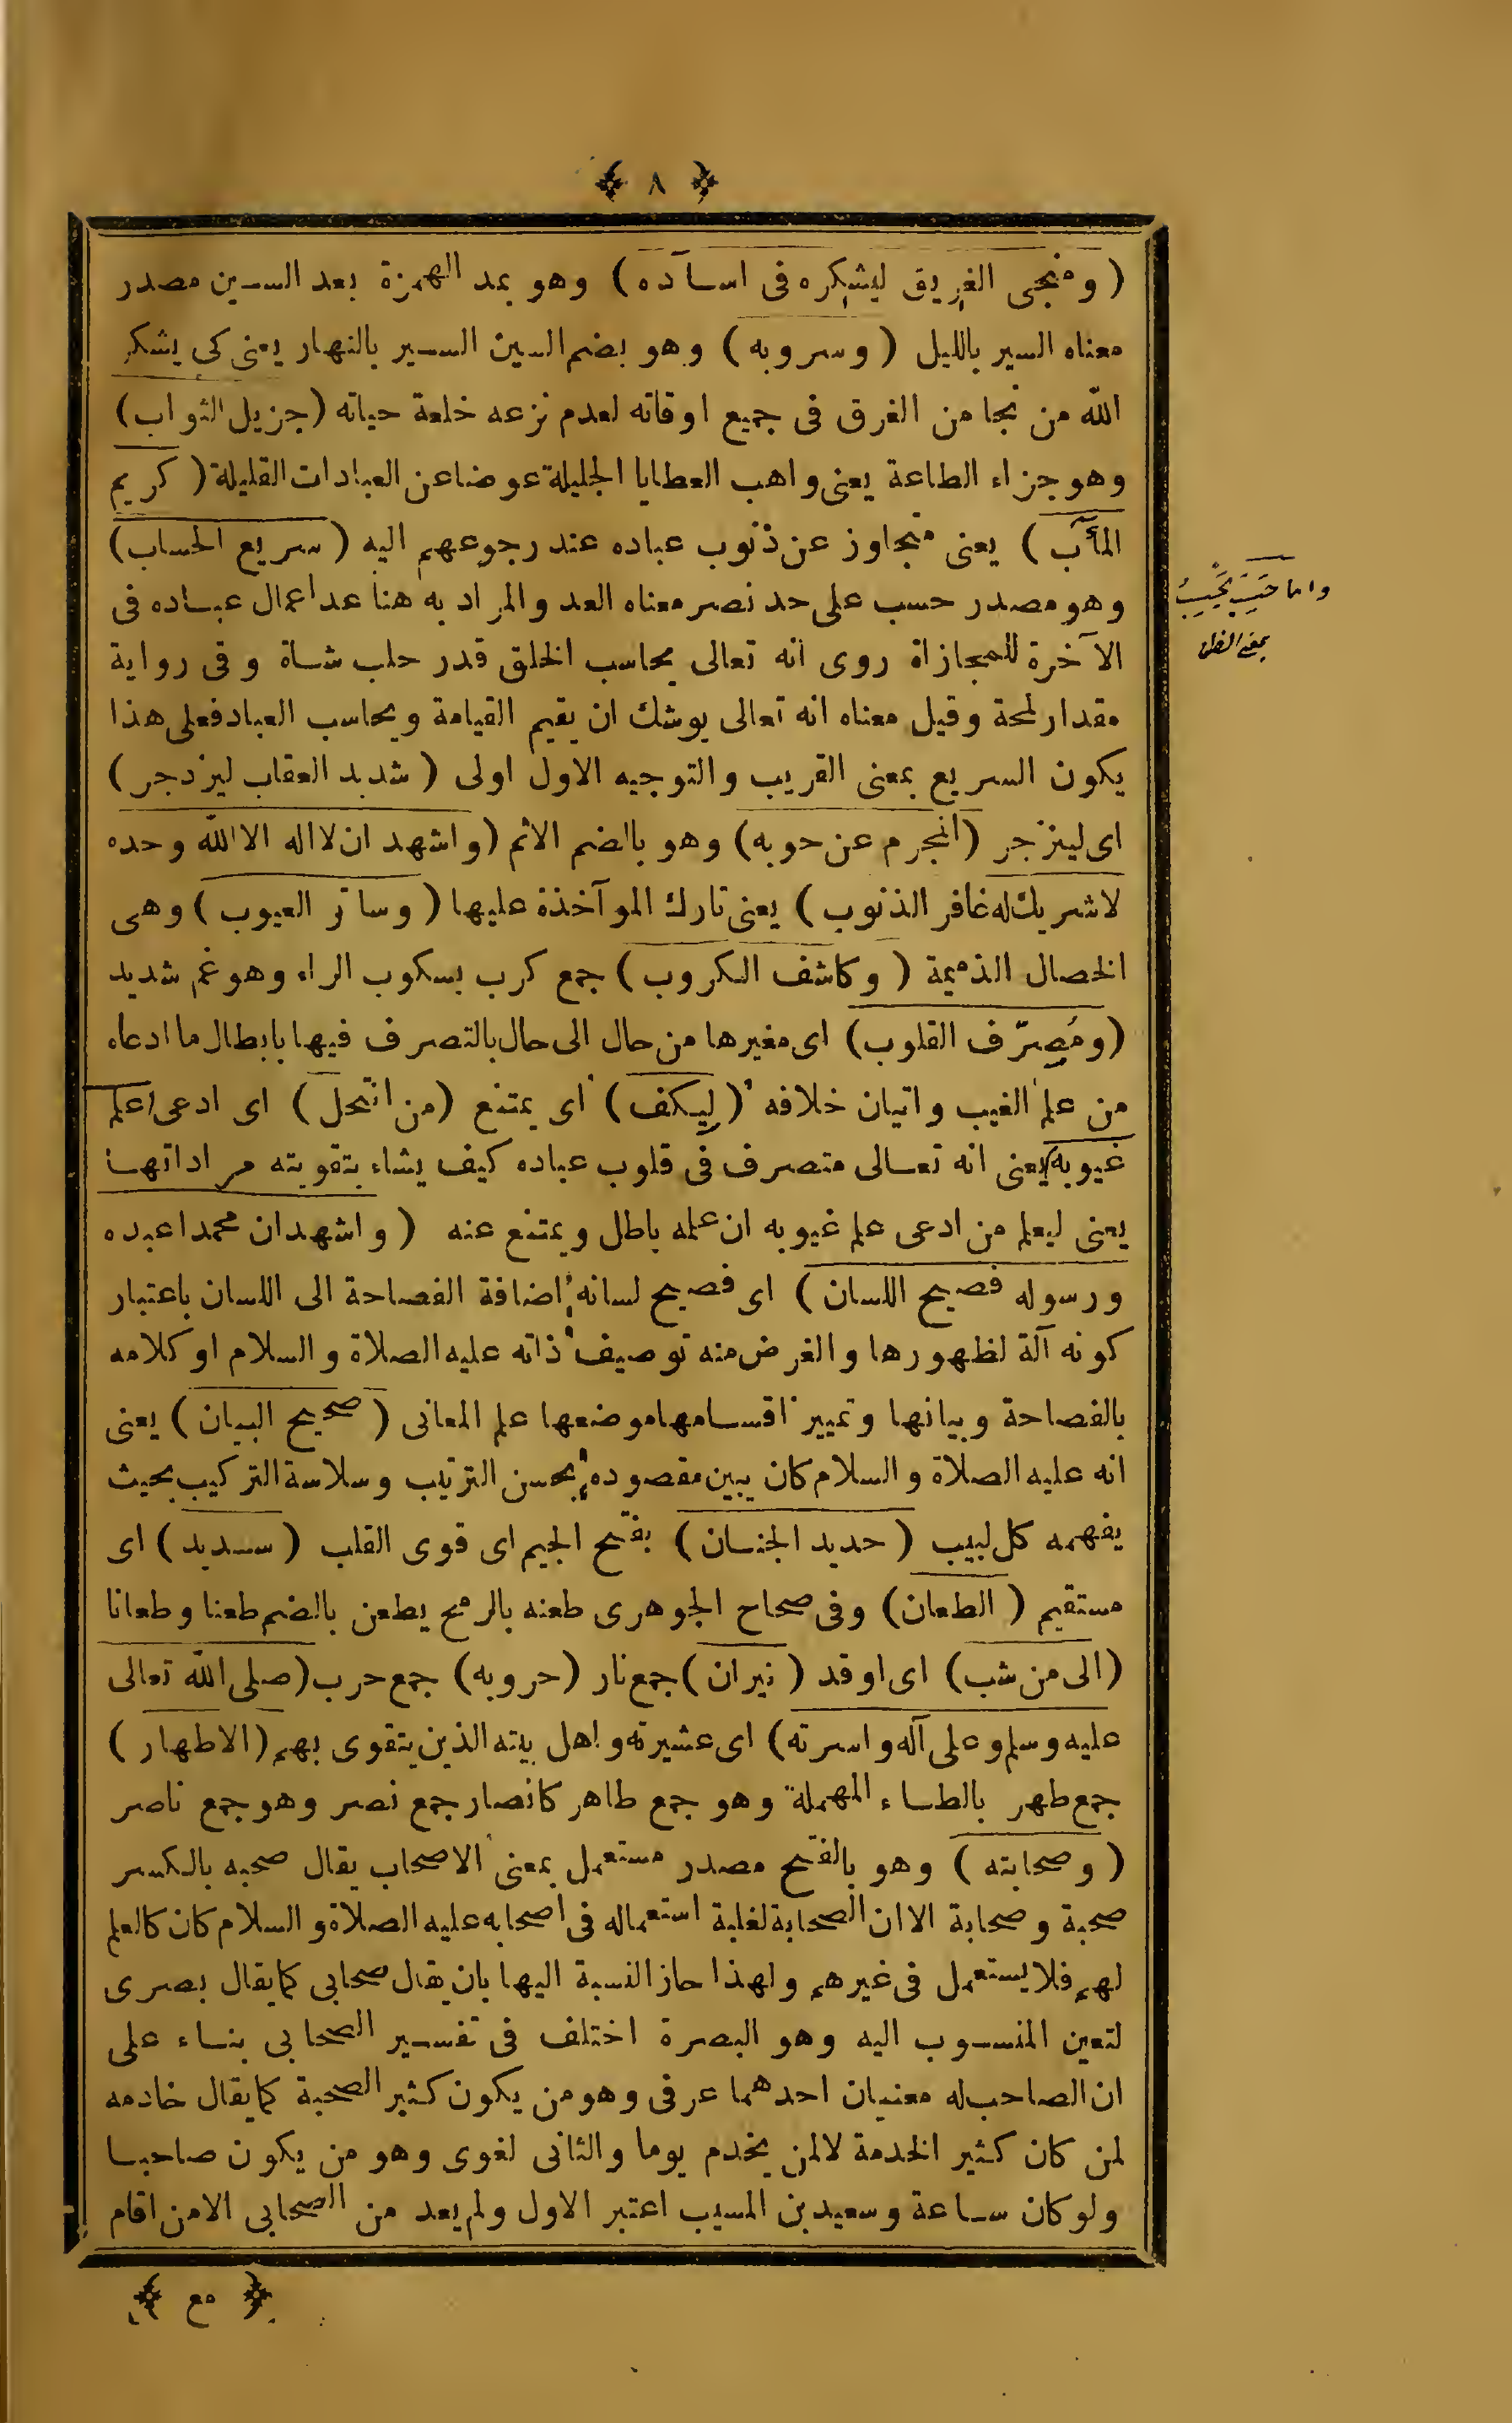 ﴿ ٨ ﴾
( ومنجى الغريق ليشكره فى اسآده ) وهو بمد الهمزة بعد السين مصدر
معناه السير بالليل ( وسروبه ) وهو بضم السين السير بالنهار يعنى كى يشكر
الله من نجا من الغرق فى جميع اوقاته لعدم نزعه خلعة حياته ( جزيل الثواب )
وهو جزاء الطاعة يعنى واهب العطايا الجليلة عوضا عن العبادات القليلة ( كريم
المآب ) يعنى متجاوز عن ذنوب عباده عند رجوعهم اليه ( سريع الحساب )
وهو مصدر حسب على حد نصر معناه العد والمراد به هنا عد اعمال عباده فى
واما حَسِبَ يَحْسِبُ
بمعنى الظن
الآخرة للمجازاة روى انه تعالى يحاسب الخلق قدر حلب شاة وفى رواية
مقدار لمحة وقيل معناه انه تعالى يوشك ان يقيم القيامة ويحاسب العباد فعلى هذا
يكون السريع بمعنى القريب والتوجيه الاول اولى ( شديد العقاب ليزدجر )
اى لينزجر ( المجرم عن حوبه ) وهو بالضم الاثم ( واشهد ان لا اله الا الله وحده
لا شريك له غافر الذنوب ) يعنى تارك المؤآخذة عليها ( وساتر العيوب ) وهى
الخصال الذميمة ( وكاشف الكروب ) جمع كرب بسكوب الراء وهو غم شديد
( ومُصرّف القلوب ) اى مغيرها من حال الى حال بالتصرف فيها بابطال ما ادعاه
من علم الغيب واتيان خلافه ( ليكف ) اى يمتنع ( من انتحل ) اى ادعى ( علم
غيوبه ) يعنى انه تعالى متصرف فى قلوب عباده كيف يشاء بتقويته مراداتها
يعنى ليعلم من ادعى علم غيوبه ان علمه باطل ويمتنع عنه ( واشهد ان محمدا عبده
ورسوله فصيح اللسان ) اى فصيح لسانه اضافة الفصاحة الى اللسان باعتبار
كونه آلة لظهورها والغرض منه توصيف ذاته عليه الصلاة والسلام او كلامه
بالفصاحة وبيانها وتمييز اقسامها موضعها علم المعانى ( صحيح البيان ) يعنى
انه عليه الصلاة والسلام كان يبين مقصوده بحسن الترتيب وسلاسة التركيب بحيث
يفهمه كل لبيب ( حديد الجنان ) بفتح الجيم اى قوى القلب ( سديد ) اى
مستقيم ( الطعان ) وفى صحاح الجوهرى طعنه بالرمح يطعن بالضم طعنا وطعانا
( الى من شب ) اى اوقد ( نيران ) جمع نار ( حروبه ) جمع حرب ( صلى الله تعالى
عليه وسلم وعلى آله واسرته ) اى عشيرته واهل بيته الذين يتقوى بهم ( الاطهار )
جمع طهر بالطاء المهملة وهو جمع طاهر كانصار جمع نصر وهو جمع ناصر
( وصحابته ) وهو بالفتح مصدر مستعمل بمعنى الاصحاب يقال صحبه بالكسر
صحبة وصحابة الا ان الصحابة لغلبة استعماله فى اصحابه عليه الصلاة والسلام كان كالعلم
لهم فلا يستعمل فى غيرهم ولهذا جاز النسبة اليها بان يقال صحابى كما يقال بصرى
لتعين المنسوب اليه وهو البصرة اختلف فى تفسير الصحابى بناء على
ان الصاحب له معنيان احدهما عرفى وهو من يكون كثير الصحبة كما يقال خادمه
لمن كان كثير الخدمة لا لمن يخدم يوما والثانى لغوى وهو من يكون صاحبا
ولو كان ساعة وسعيد بن المسيب اعتبر الاول ولم يعد من الصحابى الا من اقام
﴿ مع ﴾